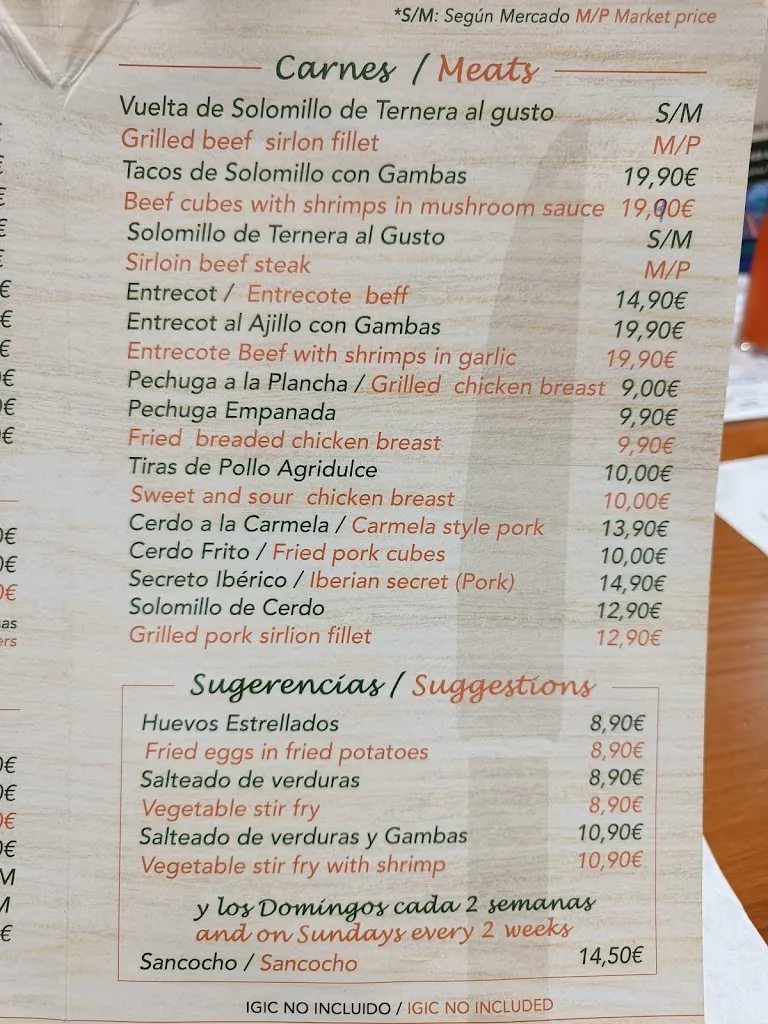 *S/M: Según Mercado M/P Market price
Carnes / Meats
Vuelta de Solomillo de Ternera al gusto S/M
Grilled beef sirlon fillet M/P
Tacos de Solomillo con Gambas 19,90€
Beef cubes with shrimps in mushroom sauce 19,90€
Solomillo de Ternera al Gusto S/M
Sirloin beef steak M/P
Entrecot / Entrecote beff 14,90€
Entrecot al Ajillo con Gambas 19,90€
Entrecote Beef with shrimps in garlic 19,90€
Pechuga a la Plancha / Grilled chicken breast 9,00€
Pechuga Empanada 9,90€
Fried breaded chicken breast 9,90€
Tiras de Pollo Agridulce 10,00€
Sweet and sour chicken breast 10,00€
Cerdo a la Carmela / Carmela style pork 13,90€
Cerdo Frito / Fried pork cubes 10,00€
Secreto Ibérico / Iberian secret (Pork) 14,90€
Solomillo de Cerdo 12,90€
Grilled pork sirlion fillet 12,90€
Sugerencias / Suggestions
Huevos Estrellados 8,90€
Fried eggs in fried potatoes 8,90€
Salteado de verduras 8,90€
Vegetable stir fry 8,90€
Salteado de verduras y Gambas 10,90€
Vegetable stir fry with shrimp 10,90€
y los Domingos cada 2 semanas
and on Sundays every 2 weeks
Sancocho / Sancocho 14,50€
IGIC NO INCLUIDO / IGIC NO INCLUDED